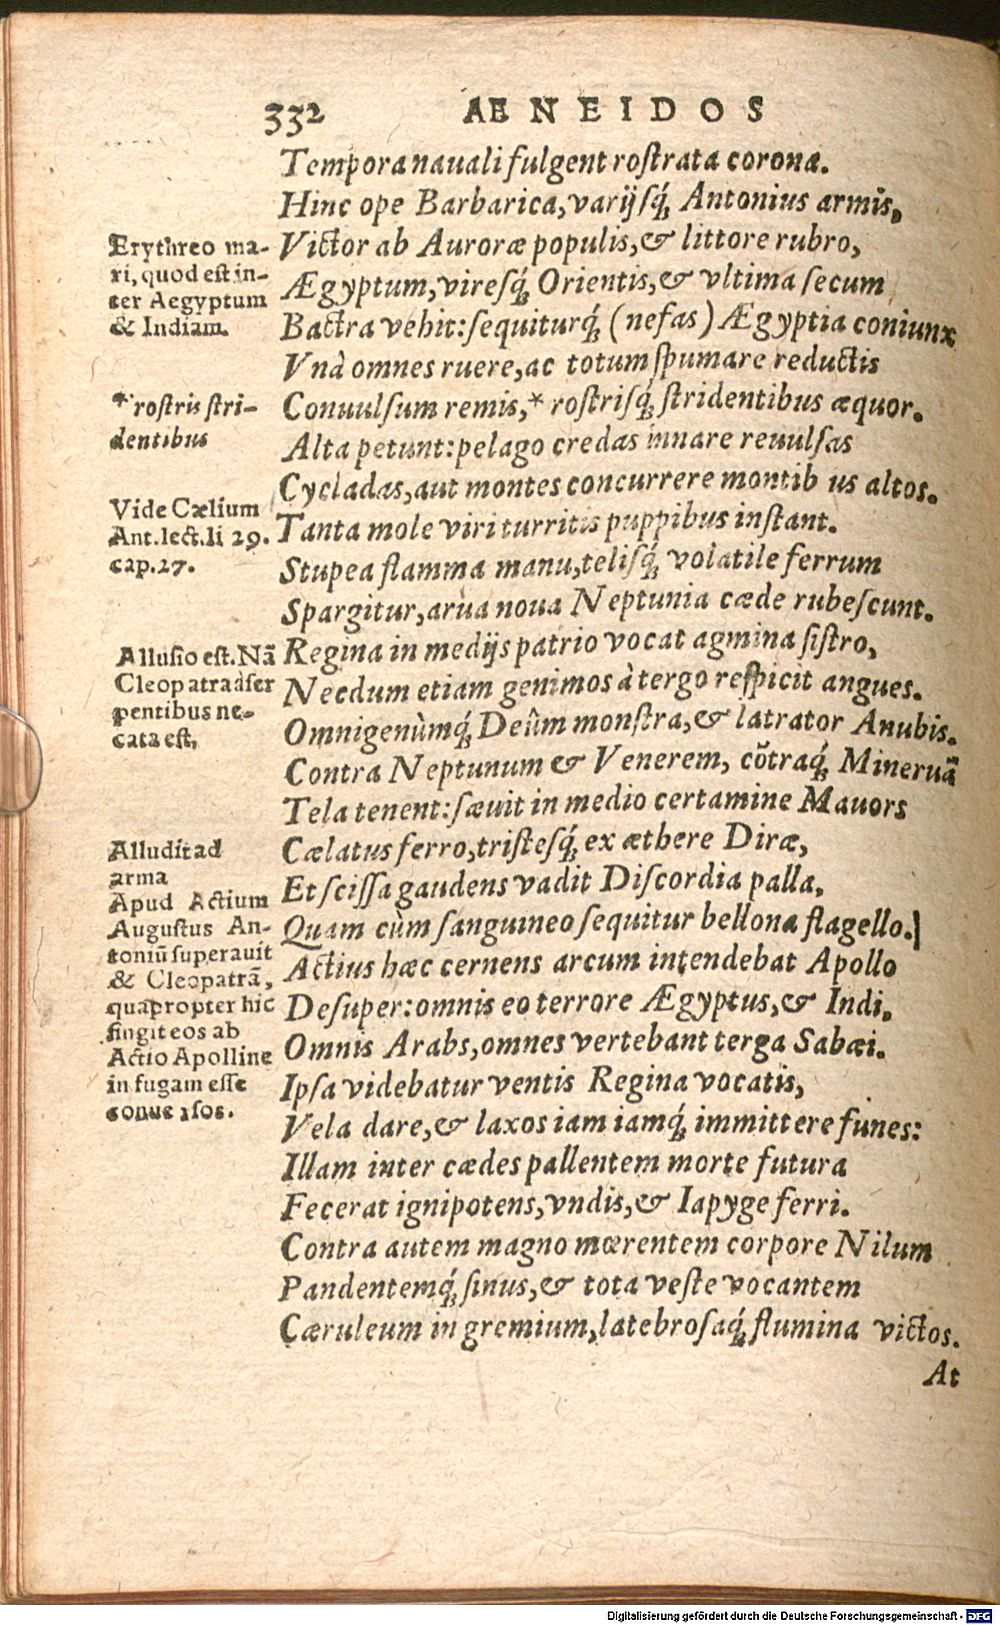 332 AENEIDOS
Tempora nauali fulgent roſtrata corona.
Hinc ope Barbarica, varijſq́; Antonius armis,
Victor ab Auroræ populis, & littore rubro,
Ægyptum, vireſq́; Orientis, & vltima ſecum
Bactra vehit: ſequiturq́; (nefas) Ægyptia coniunx
Vnà omnes ruere, ac totum ſpumare reductis
Conuulſum remis,* roſtriſq́; ſtridentibus æquor.
Alta petunt: pelago credas innare reuulſas
Cycladas, aut montes concurrere montib us altos.
Tanta mole viri turritis puppibus inſtant.
Stupea flamma manu, teliſq́; volatile ferrum
Spargitur, arua noua Neptunia cæde rubeſcunt.
Regina in medijs patrio vocat agmina ſiſtro,
Necdum etiam genimos à tergo reſpicit angues.
Omnigenùmq́; Deûm monſtra, & latrator Anubis.
Contra Neptunum & Venerem, cõtraq́; Mineruã
Tela tenent: ſæuit in medio certamine Mauors
Cælatus ferro, triſteſq́; ex æthere Diræ,
Et ſciſſa gaudens vadit Diſcordia palla.
Quam cùm ſanguineo ſequitur bellona flagello.
Actius hæc cernens arcum intendebat Apollo
Deſuper: omnis eo terrore Ægyptus, & Indi.
Omnis Arabs, omnes vertebant terga Sabæi.
Ipſa videbatur ventis Regina vocatis,
Vela dare, & laxos iam iamq́; immittere funes:
Illam inter cædes pallentem morte futura
Fecerat ignipotens, vndis, & Iapyge ferri.
Contra autem magno mœrentem corpore Nilum
Pandentemq́; ſinus, & tota veſte vocantem
Cæruleum in gremium, latebroſaq́; flumina victos.
At
Erythreo ma-
ri, quod eſt in-
ter Aegyptum
& Indiam.
* roſtris ſtri-
dentibus
Vide Cælium
Ant. lect. li 29.
cap. 27.
Alluſio eſt. Nã
Cleopatra à ſer
pentibus ne-
cata eſt,
Alludit ad
arma
Apud Actium
Auguſtus An-
toniũ ſuperauit
& Cleopatrã,
quapropter hic
fingit eos ab
Actio Apolline
in fugam eſſe
conuerſos.
Digitalisierung gefördert durch die Deutsche Forschungsgemeinschaft - DFG